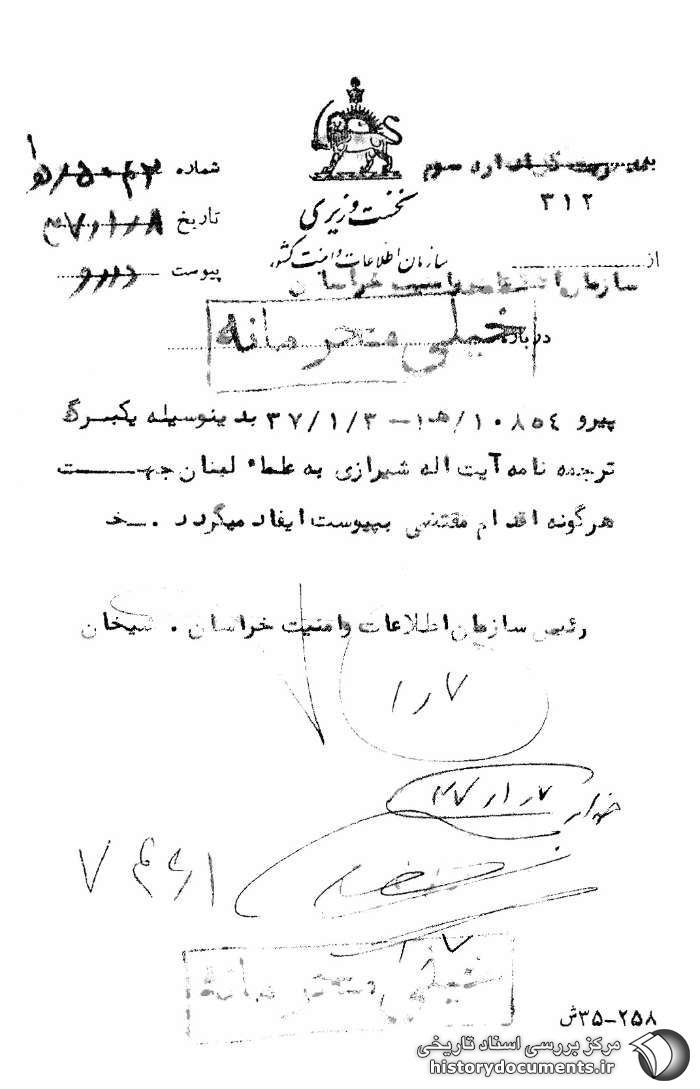 نخست وزیری
سازمان اطلاعات و امنیت کشور
به مدیریت کل اداره سوم
۳۱۲
شماره
تاریخ
پیوست دارد
از
سازمان اطلاعات و امنیت خراسان
درباره
خیلی محرمانه
پیرو ۱۰۸۵٤/ﻫ۱– ۳۷/۱/۳ بدینوسیله یکبرگ
ترجمه نامه آیت اله شیرازی به علماء لبنان جهت
هرگونه اقدام مقتضی بپیوست ایفاد میگردد . خ
رئیس سازمان اطلاعات و امنیت خراسان . شیخان
۱٫۷
۴۷٫۱٫۷
خیلی محرمانه
۳۵–۲۵۸ش
مرکز بررسی اسناد تاریخی
historydocuments.ir